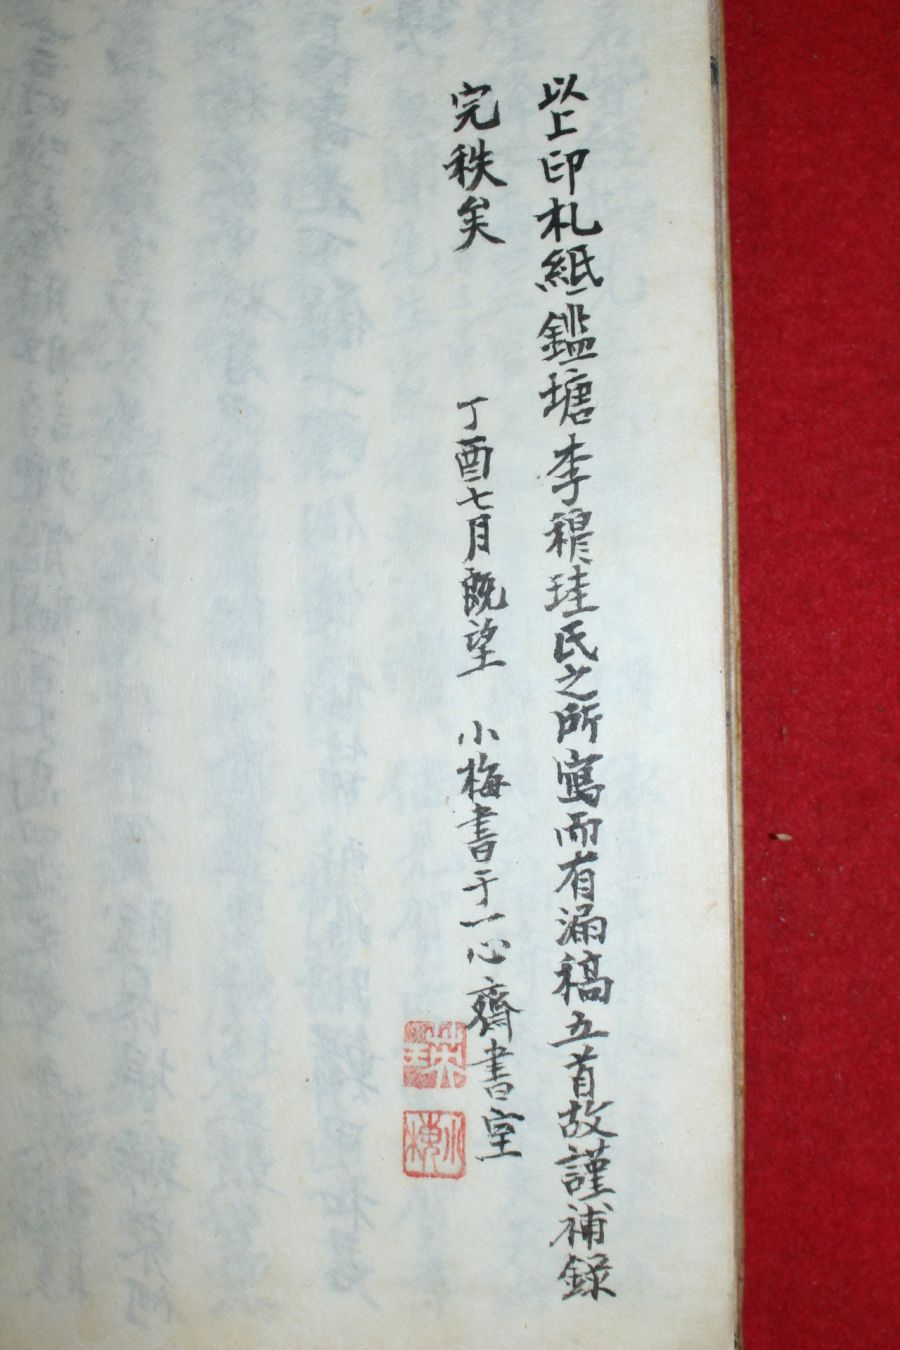 以上印札紙鑑塘李穆珪氏之所寫而有漏稿五首故謹補錄
完秩矣　丁酉七月旣望　小梅書于一心齋書室